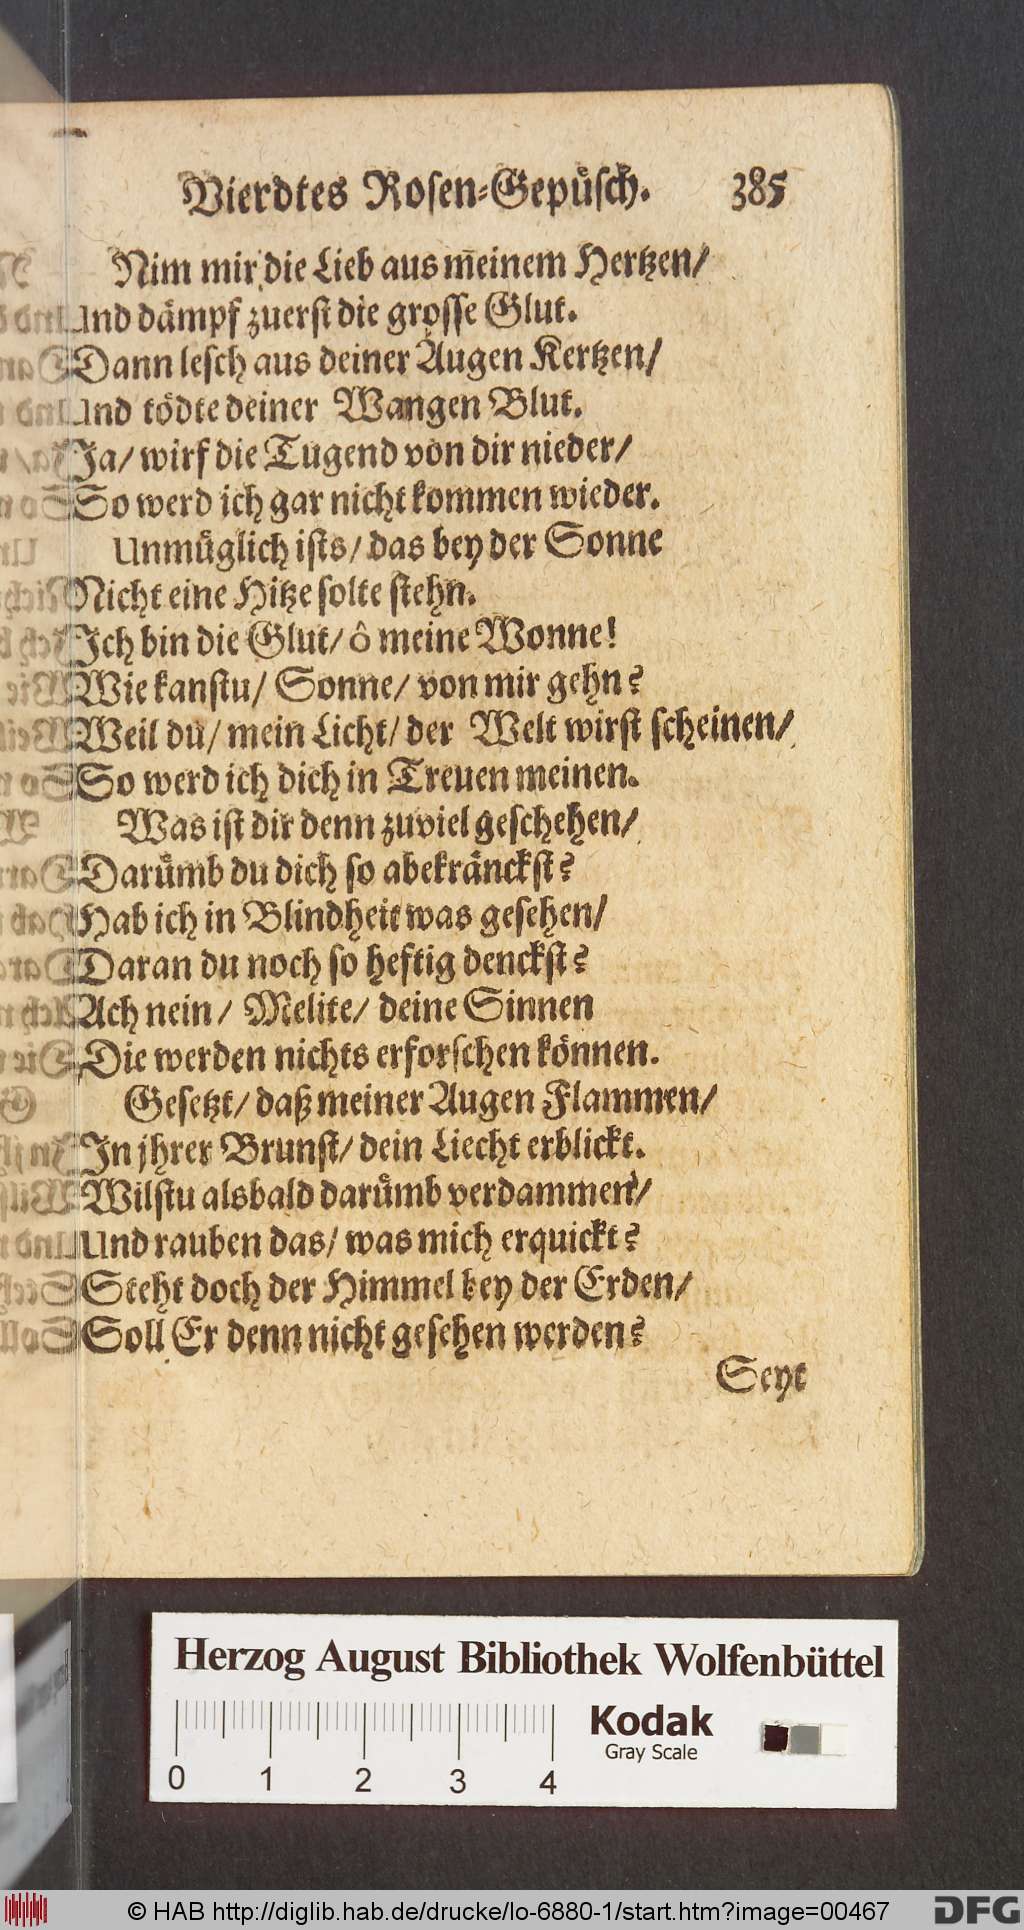 Vierdtes Rosen-Gepüsch. 385
Nim mir die Lieb aus meinem Hertzen/
Und dämpf zuerst die grosse Glut.
Dann lesch aus deiner Augen Kertzen/
Und tödte deiner Wangen Blut.
Ja/ wirf die Tugend von dir nieder/
So werd ich gar nicht kommen wieder.
Unmüglich ists/ das bey der Sonne
Nicht eine Hitze solte stehn.
Ich bin die Glut/ ô meine Wonne!
Wie kanstu/ Sonne/ von mir gehn?
Weil du/ mein Licht/ der Welt wirst scheinen/
So werd ich dich in Treuen meinen.
Was ist dir denn zuviel geschehen/
Darümb du dich so abekränckst?
Hab ich in Blindheit was gesehen/
Daran du noch so heftig denckst?
Ach nein/ Melite/ deine Sinnen
Die werden nichts erforschen können.
Gesetzt/ daß meiner Augen Flammen/
In jhrer Brunst/ dein Liecht erblickt.
Wilstu alsbald darümb verdammen/
Und rauben das/ was mich erquickt?
Steht doch der Himmel bey der Erden/
Soll Er denn nicht gesehen werden?
Seyt
Herzog August Bibliothek Wolfenbüttel
Kodak
Gray Scale
0 1 2 3 4
© HAB http://diglib.hab.de/drucke/lo-6880-1/start.htm?image=00467
DFG